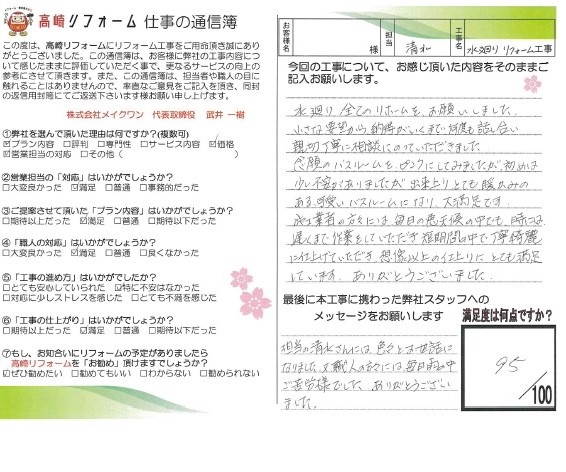 高崎リフォーム 仕事の通信簿
この度は、高崎リフォームにリフォーム工事をご用命頂き誠にあり
がとうございました。この通信簿は、お客様に弊社の工事内容につ
いて感じたままに評価していただく事で、更なるサービスの向上の
参考にさせて頂きます。また、この通信簿は、担当者や職人の目に
触れることはありませんので、率直なご意見をご記入を頂き、同封
の返信用封筒にてご返送下さいます様お願い申し上げます。
株式会社メイクワン 代表取締役 武井 一樹
①弊社を選んで頂いた理由は何ですか?(複数可)
☑プラン内容 □評判 □専門性 □サービス内容 ☑価格
☑営業担当の対応 □その他( )
②営業担当の「対応」はいかがでしょうか?
□大変良かった ☑満足 □普通 □事務的だった
③ご提案させて頂いた「プラン内容」はいかがでしょうか?
□期待以上だった ☑満足 □普通 □期待以下だった
④「職人の対応」はいかがでしょうか?
□大変良かった ☑満足 □普通 □良くなかった
⑤「工事の進め方」はいかがでしたか?
□とても安心していられた ☑特に不安はなかった
□対応に少しストレスを感じた □とても不満を感じた
⑥「工事の仕上がり」はいかがでしょうか?
□期待以上だった ☑満足 □普通 □期待以下だった
⑦もし、お知合いにリフォームの予定がありましたら
高崎リフォームを「お勧め」頂けますでしょうか?
☑ぜひ勧めたい □勧めてもいい □わからない □勧められない
お客様名 様 担当 清水 工事名 水廻り リフォーム工事
今回の工事について、お感じ頂いた内容をそのままご
記入お願いします。
水廻り全てのリホームを、お願いしました。
小さな要望から納得がいくまで何度も話し合い
親切丁寧に相談にのっていただきました
念願のバスルームを、ピンクにしてみましたが、初めは
少し不安がありましたが出来上りとても暖かみの
ある可愛いバスルームになり、大満足です。
施工業者の方々には毎日の悪天候の中でも、時には
遅くまで作業をしていただき短期間の中で丁寧綺麗
に仕上げていただき想像以上の仕上りにとても満足
しています。ありがとうございました。
最後に本工事に携わった弊社スタッフへの
メッセージをお願いします
担当の清水さんには色々とお世話に
なりました。又職人の方々には、毎日雨の中
ご苦労様でした ありがとうござい
ました。
満足度は何点ですか?
95
/100